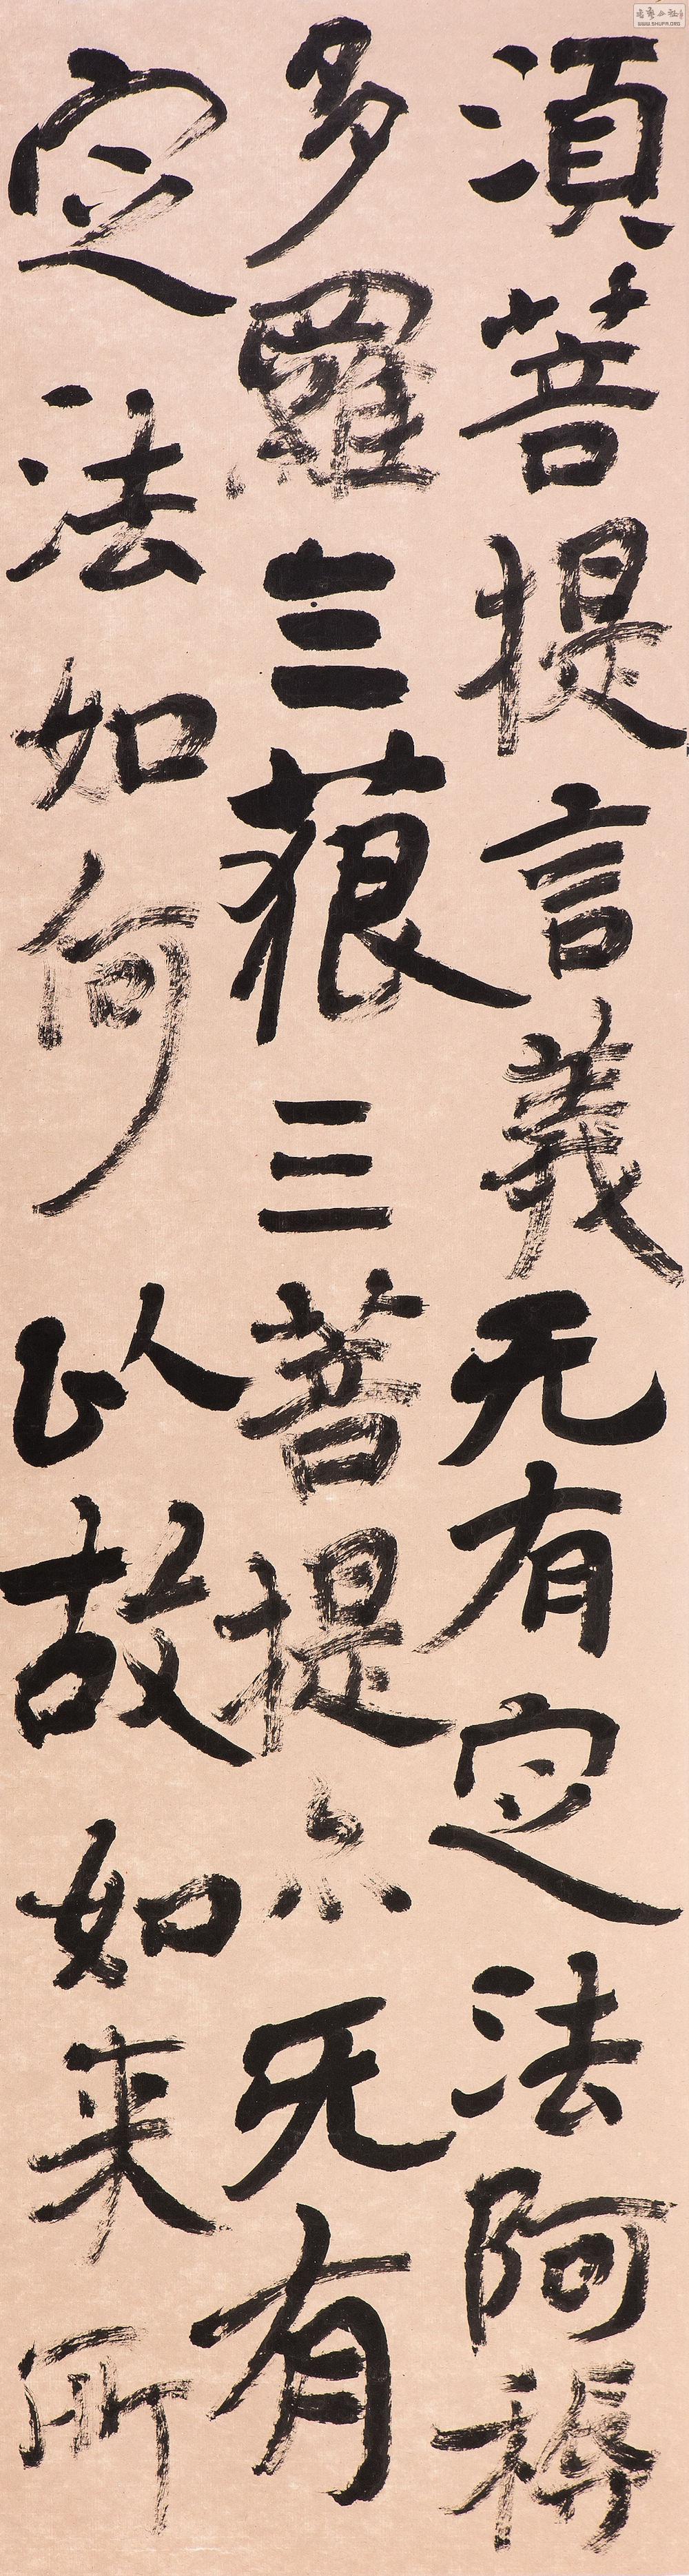 須菩提言義无有定法阿耨
多羅三藐三菩提亦无有
定法如何以故如来所
WWW.SHUFA.ORG